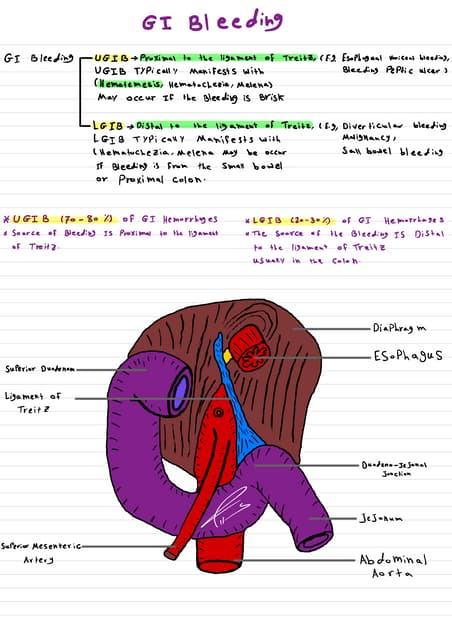 GI Bleeding
GI Bleeding
UGIB → Proximal to the ligament of Treitz, (E.g Esophageal Variceal bleeding,
UGIB Typically Manifests with Bleeding Peptic ulcer)
(Hematemesis, Hematochezia, Melena)
May occur If the Bleeding is Brisk
LGIB → Distal to the ligament of Treitz, (E.g, Diverticular bleeding
LGIB Typically Manifests with Malignancy,
(Hematochezia, Melena may be occur Sall bowel bleeding
If Bleeding is from the Small bowel
or Proximal colon.
* UGIB (70-80%) of GI Hemorrhages
* Source of Bleeding Is Proximal to the ligament
of Treitz.
* LGIB (20-30%) of GI Hemorrhages
* The Source of the Bleeding IS Distal
to the ligament of Treitz
usually in the Colon.
Diaphragm
ESophagus
Superior Duodenum
Ligament of
Treitz
Duodeno-Jejunal
Junction
Jejunum
Superior Mesenteric
Artery
Abdominal
Aorta